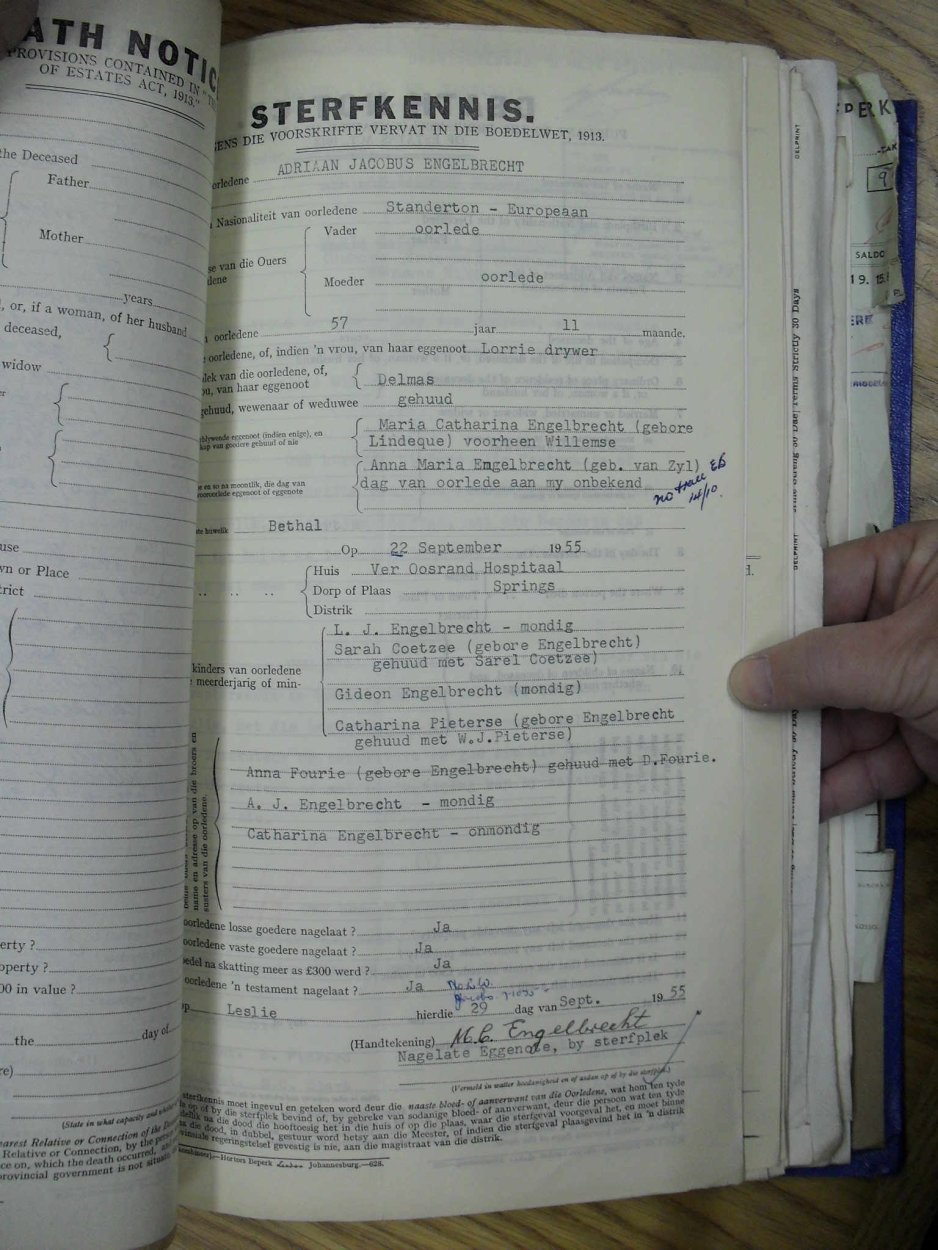 ATH NOTIC
PROVISIONS CONTAINED IN "T
OF ESTATES ACT, 1913."
the Deceased
Father
Mother
years
, or, if a woman, of her husband
deceased,
widow
use
wn or Place
trict
erty ?
operty ?
00 in value ?
the day of
(State in what capacity and
earest Relative or Connection of the
Relative or Connection, by the person
ce on, which the death occurred,
provincial government is not situate
STERFKENNIS.
ENS DIE VOORSKRIFTE VERVAT IN DIE BOEDELWET, 1913.
orledene ADRIAAN JACOBUS ENGELBRECHT
Nasionaliteit van oorledene Standerton - Europeaan
Vader oorlede
se van die Ouers
dene
Moeder oorlede
oorledene 57 jaar 11 maande.
oorledene, of, indien 'n vrou, van haar eggenoot Lorrie drywer
lek van die oorledene, of,
ou, van haar eggenoot Delmas
gehuud, wewenaar of weduwee gehuud
rblywende eggenoot (indien enige), en
kap van goedere gehuud of nie
Maria Catharina Engelbrecht (gebore
Lindeque) voorheen Willemse
Anna Maria Engelbrecht (geb. van Zyl)
e en so na moontlik, die dag van
vooroorlede eggenoot of eggenote
dag van oorlede aan my onbekend
no trace
14/10.
te huwelik Bethal
Op 22 September 1955.
Huis Ver Oosrand Hospitaal
Dorp of Plaas Springs
Distrik
kinders van oorledene
meerderjarig of min-
L. J. Engelbrecht - mondig
Sarah Coetzee (gebore Engelbrecht)
gehuud met Sarel Coetzee)
Gideon Engelbrecht (mondig)
Catharina Pieterse (gebore Engelbrecht
gehuud met W.J.Pieterse)
name en adresse op van die broers en
susters van die oorledene.
Anna Fourie (gebore Engelbrecht) gehuud met D.Fourie.
A. J. Engelbrecht - mondig
Catharina Engelbrecht - onmondig
oorledene losse goedere nagelaat ? Ja
oorledene vaste goedere nagelaat ? Ja
edel na skatting meer as £300 werd ? Ja
oorledene 'n testament nagelaat ? Ja
op Leslie hierdie 29 dag van Sept. 1955
(Handtekening) M.C. Engelbrecht
Nagelate Eggenote, by sterfplek
(Vermeld in watter hoedanigheid en of aldan op of by die sterfplek)
sterfkennis moet ingevul en geteken word deur die naaste bloed- of aanverwant van die Oorledene, wat hom ten tyde
op of by die sterfplek bevind of, by gebreke van sodanige bloed- of aanverwant, deur die persoon wat ten tyde
na die dood die hooftoesig het in die huis of op die plaas, waar die sterfgeval voorgeval het, en moet binne
die dood, in dubbel, gestuur word hetsy aan die Meester, of indien die sterfgeval plaasgevind het in 'n distrik
vinsiale regeringsetel gevestig is nie, aan die magistraat van die distrik.
Hortors Beperk Johannesburg.—628.
SALDO